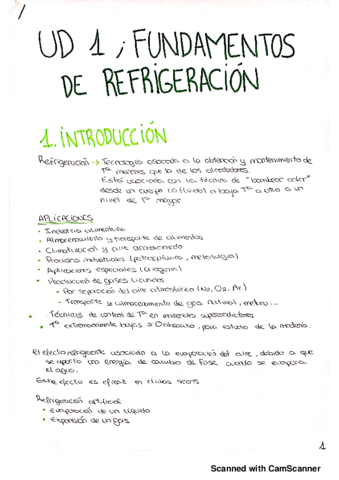 UD 1 ; FUNDAMENTOS
DE REFRIGERACIÓN
1. INTRODUCCIÓN
Refrigeración → Tecnología asociada a la obtención y mantenimiento de
Tª menores que la de los alrededores.
Está asociada con la técnica de "bombear calor"
desde un cuerpo (o fluido) a baja Tª a otro a un
nivel de Tª mayor
APLICACIONES
• Industria alimentaria
• Almacenamiento y transporte de alimentos
• Climatización y aire acondicionado
• Procesos industriales (petroquímica, metalurgia)
• Aplicaciones especiales (criogenia)
• Producción de gases licuados
- Por separación del aire atmosférico (N₂, O₂, Ar)
- Transporte y almacenamiento de gas natural, metano...
• Técnicas de control de Tª en materiales superconductores
• Tª extremadamente bajas ≥ 0 absoluto, para estudio de la materia.
El efecto refrigerante asociado a la evaporación del aire, debido a que
se aporta una energía de cambio de fase cuando se evapora
el agua.
Este efecto es eficaz en climas secos
Refrigeración artificial
• Evaporación de un líquido
• Expansión de un gas
1
Scanned with CamScanner